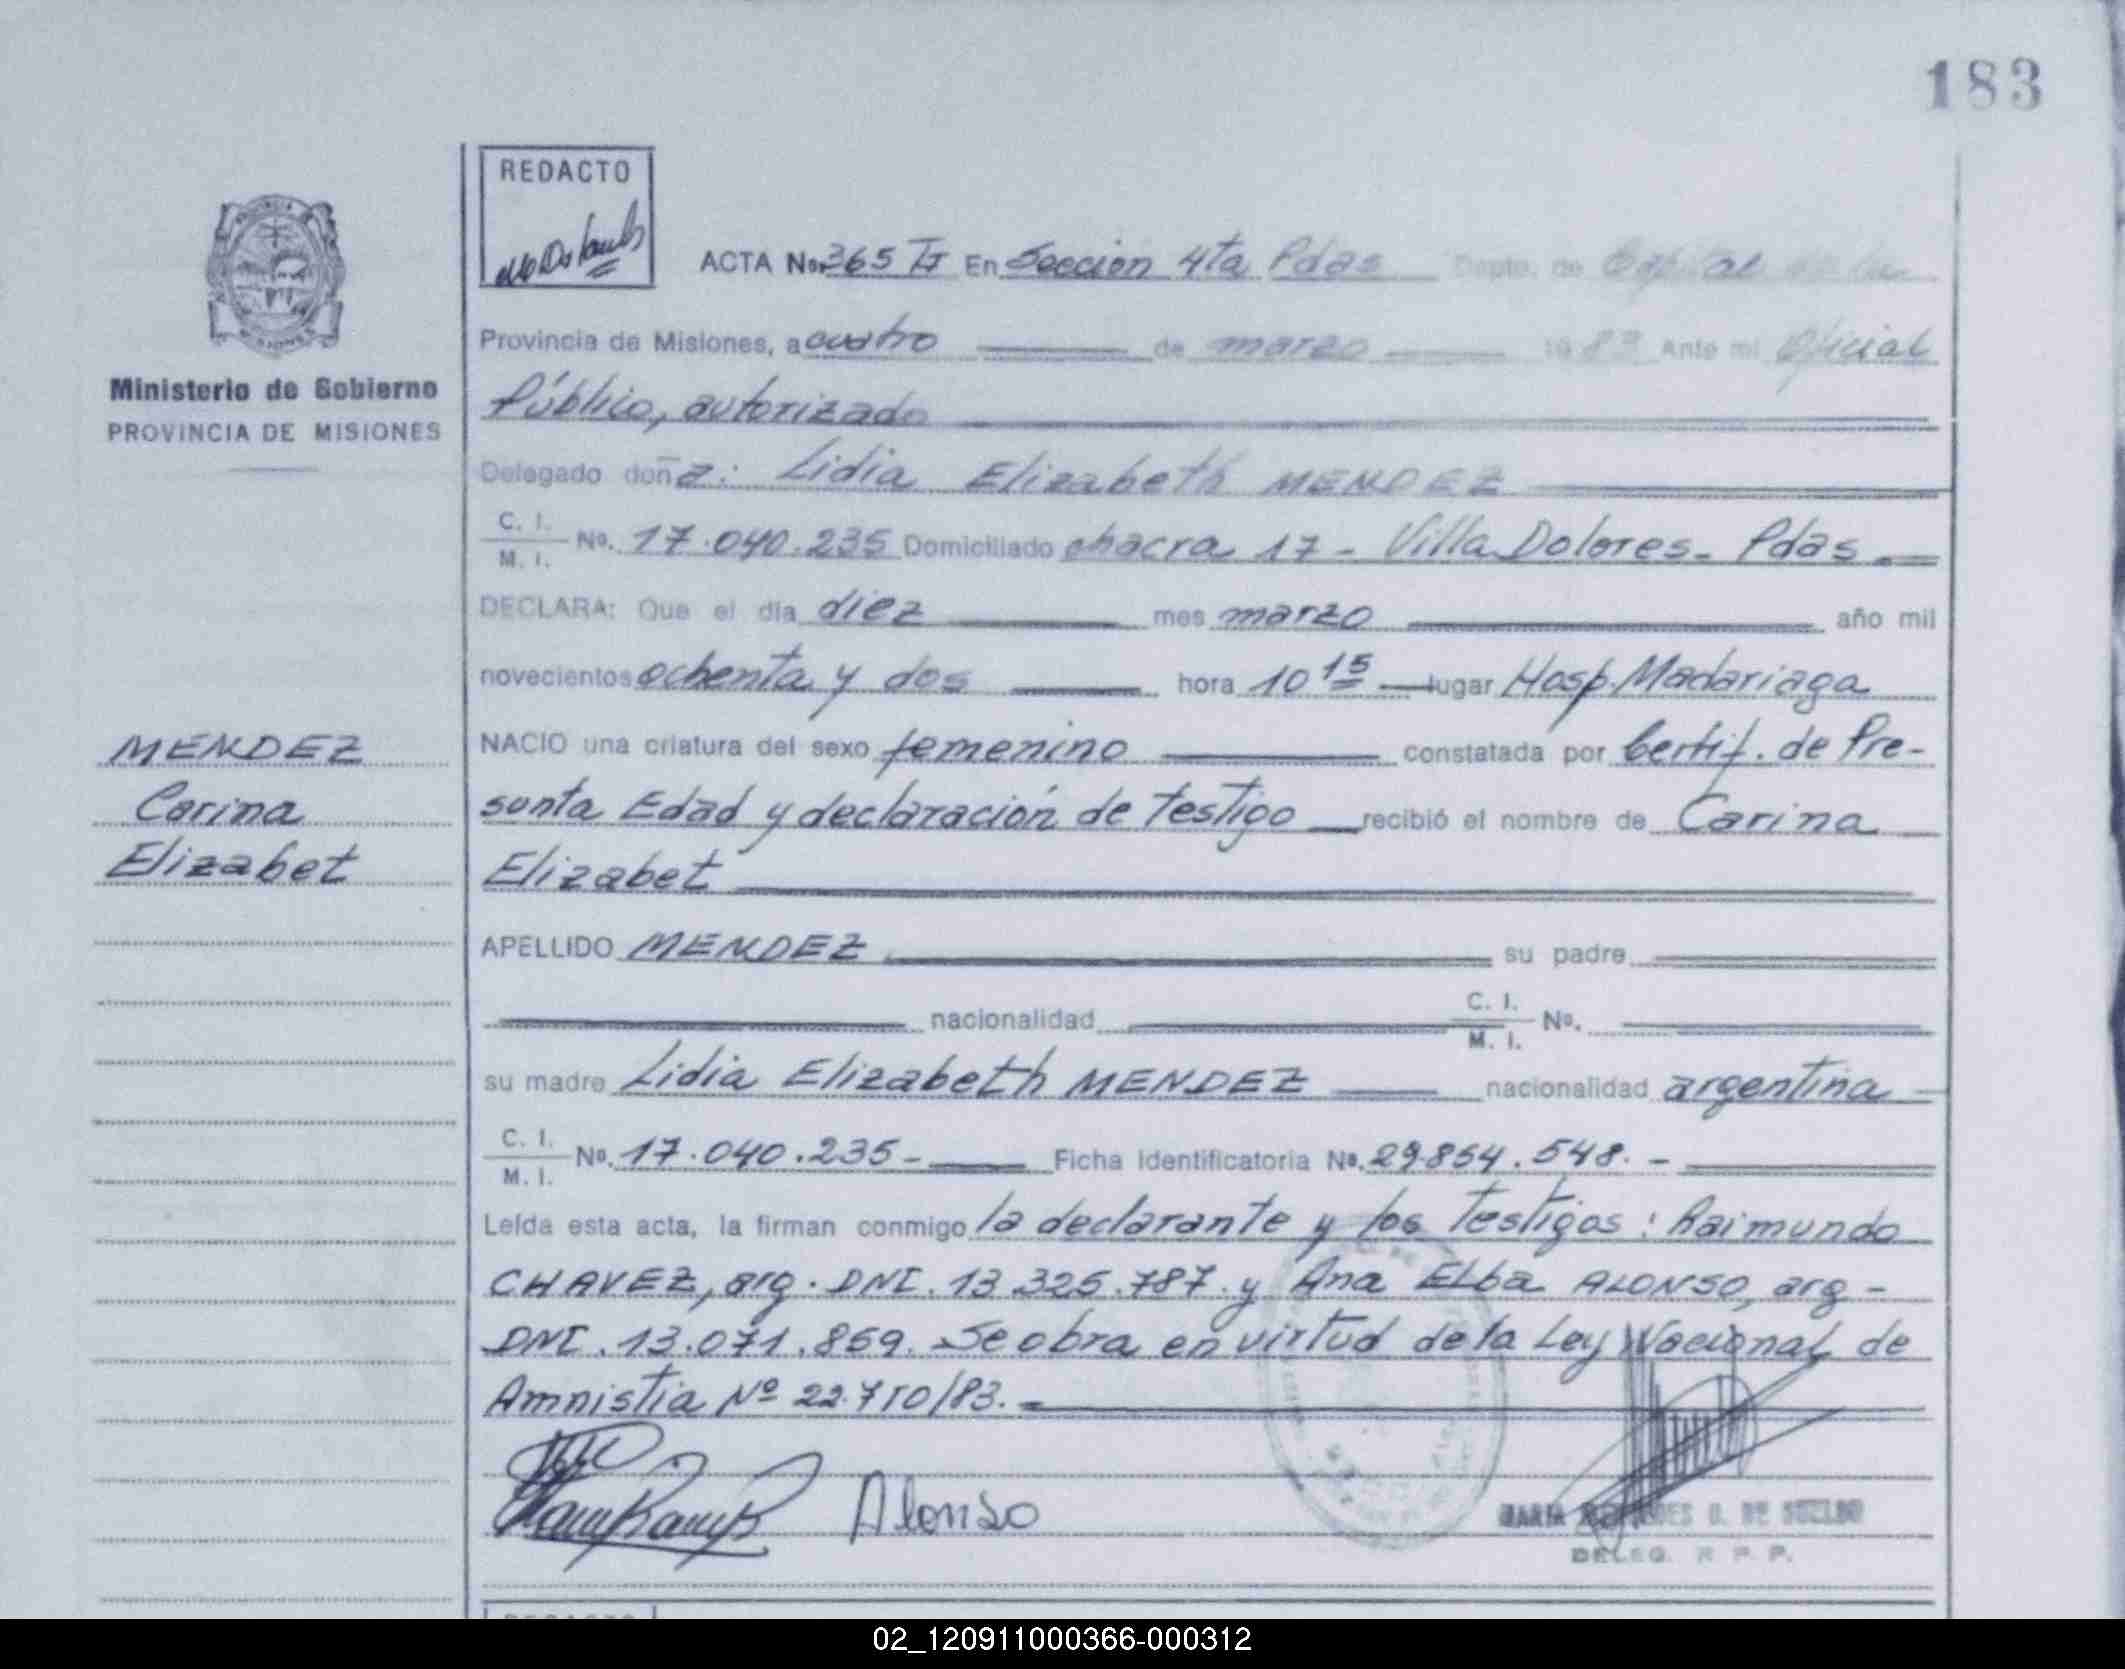 183
REDACTO
ACTA No. 365 TI En Sección 4ta Pdas Depto. de Capital de la
Provincia de Misiones, a cuatro de marzo 1983 Ante mi Oficial
Público, autorizado
Delegado doña: Lidia Elizabeth MENDEZ
C. I.
M. I.
No. 17.040.235 Domiciliado chacra 17 - Villa Dolores - Pdas.
DECLARA: Que el día diez mes marzo año mil
novecientos ochenta y dos hora 10 15 lugar Hosp. Madariaga
NACIO una criatura del sexo femenino constatada por Certif. de Pre-
sunta Edad y declaración de testigo recibió el nombre de Carina
Elizabet
APELLIDO MENDEZ su padre
nacionalidad C. I.
M. I.
No.
su madre Lidia Elizabeth MENDEZ nacionalidad argentina
C. I.
M. I.
No. 17.040.235 - Ficha Identificatoria No. 29.854.548. -
Leída esta acta, la firman conmigo la declarante y los testigos: Raimundo
CHAVEZ, arg. DNI. 13.325.787 y Ana ELba ALONSO, arg -
DNI. 13.071.859. Se obra en virtud de la Ley Nacional de
Amnistia Nº 22.710/83. -
Alonso
DELEG. R. P. P.
Ministerio de Gobierno
PROVINCIA DE MISIONES
MENDEZ
Carina
Elizabet
02_120911000366-000312